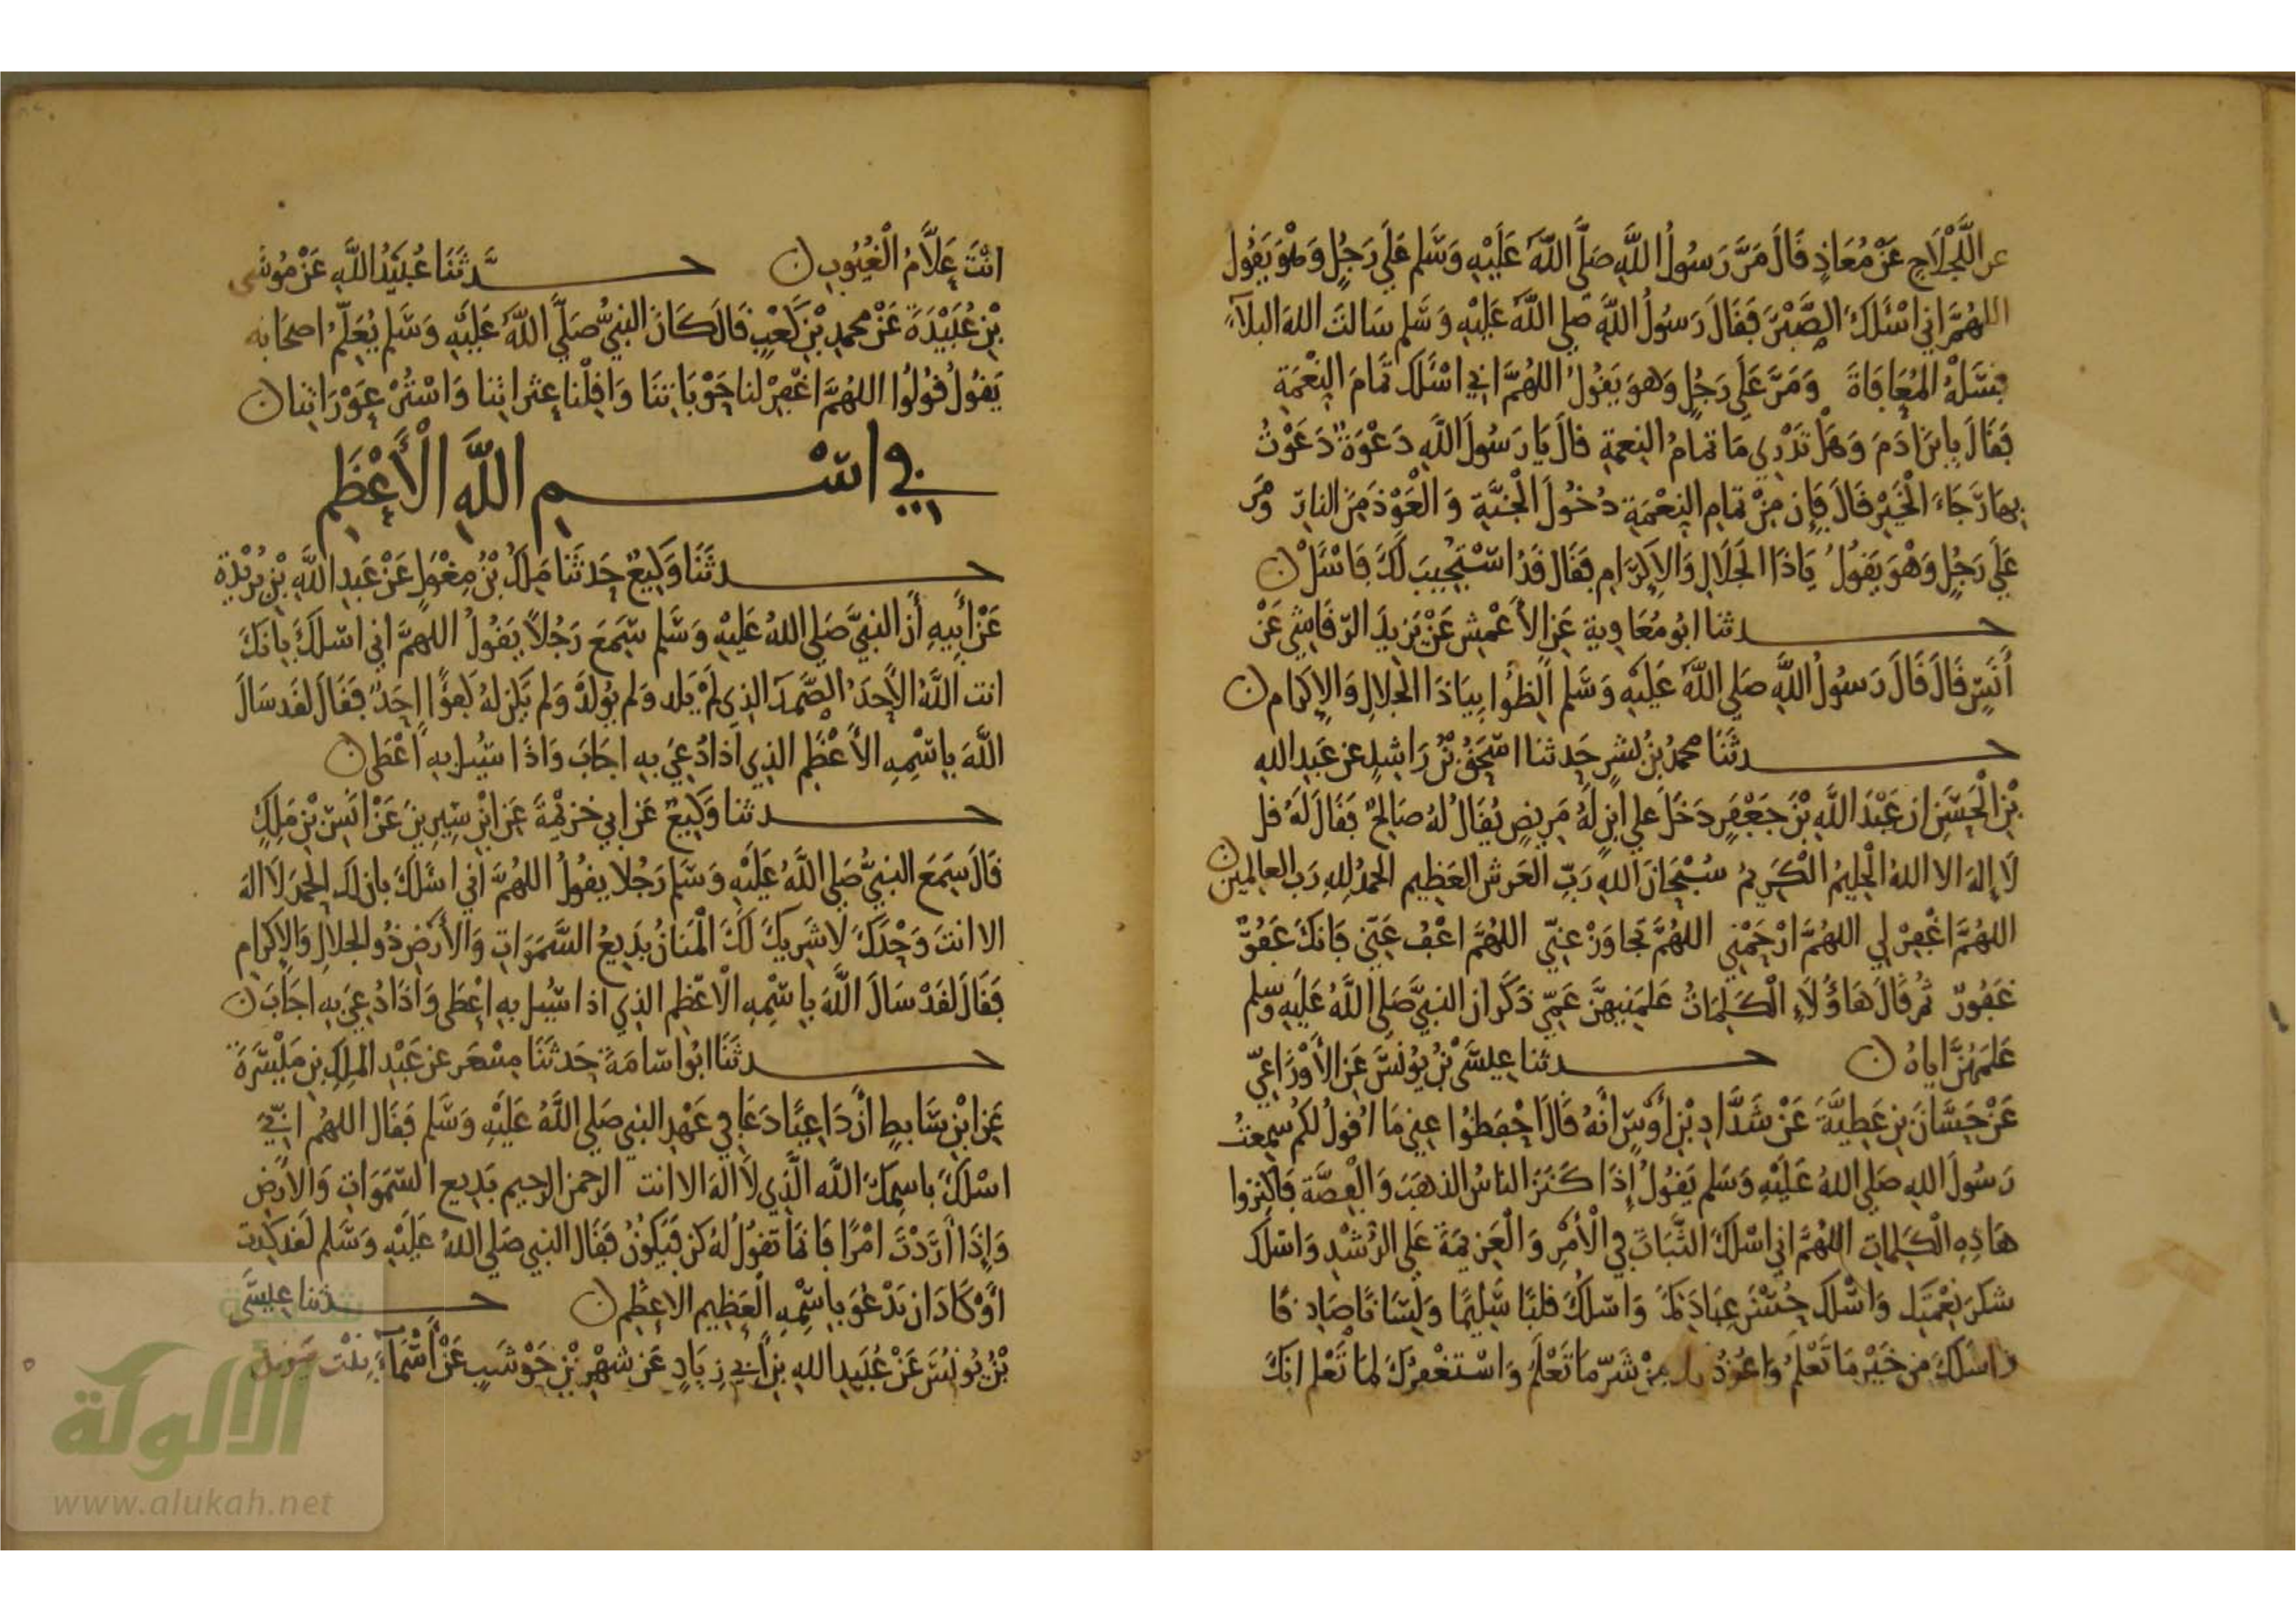 عن اللَّجْلَاجِ عَنْ مُعَاذٍ قَالَ مَرَّ رَسُولُ اللَّهِ صَلَّى اللَّهُ عَلَيْهِ وَسَلَّم عَلَى رَجُلٍ وَهْوَ يَقُولُ
اللهُمَّ اني اسْئَلُكَ الصَّبْرَ فَقَالَ رَسُولُ اللَّهِ صلى اللَّهُ عَلَيْهِ وَسَلَّم سَالتَ اللهَ البلآءَ
فسَلْهُ المُعَافَاةَ وَمَرَّ عَلَى رَجُلٍ وَهوَ يَقُولُ اللهُمَّ اني اسْئَلُكَ تَمَامَ النِعْمَةِ
فَقَالَ يا بنَ ادَمَ وَهَلْ تَدْرِي مَا تمامُ النِعمةِ قالَ يَا رَسُولَ اللَّهِ دَعْوَةٌ دَعَوْتُ
بِهَا رَجَاءَ الْخَيْرِ قَالَ فَإِن مِنْ تمامِ النِعْمَةِ دُخُولَ الْجَنَّةِ وَالْعَوْذَ مِنَ النارِ وَمَر
عَلَى رَجُلٍ وَهْوَ يَقُولُ يَاذَا الجَلَالِ وَالإِكْرَامِ فَقَال قَدُ اسْتُجِيبَ لَكَ فَاسْئَلْ ن
حـدثنا ابُو مُعَاوِية عَنِ الأَعْمِشِ عَنْ يَزِيدَ الرّقَاشِي عَنْ
أَنَسٍ قَالَ قَالَ رَسُولُ اللَّهِ صَلى اللَّهُ عَلَيْهِ وَسَلم أَلِظُّوا بِيَاذَا الجَلالِ وَالإِكرَام ن
حـدثَنَا محمدُ بْنُ بشرٍ حَدثنا اسْحَقُ بْنُ رَاشِدٍ عن عَبدِ اللهِ
بْنِ الْحَسَنِ ان عَبْدَ اللَّهِ بْنَ جَعْفَرٍ دَخَلَ علي ابنٍ لَهُ مَرِيضٍ يُقَالُ لهُ صَالِحٌ فَقَالَ لَهُ قل
لَا إِلهَ الا اللهُ الْحَلِيمُ الْكَرِيمُ سُبْحَانَ اللهِ رَبِّ العَرشِ العَظِيمِ الحمدُ لِلهِ رَب العالمين ن
اللهُمَّ اغْفِرْ لِي اللهُمَّ ارْحَمْنِي اللهُمَّ تَجاوَزْ عنِّي اللهُمَّ اعْفُ عَنِّي فَانكَ عَفُوٌّ
غَفُورٌ ثُم قَالَ هَاؤُلَاءِ الْكَلِمَاتُ عَلمَنِيهنَّ عَمِّي ذَكَرَ ان النبيَّ صَلى اللَّهُ عَلَيهِ وَسَلم
عَلمَهُنَّ اياهُ ن حـدثنا عِيسَى بْنُ يُونُسَ عَنِ الأَوْزَاعِيِّ
عَنْ حَسَّانَ بنِ عَطِيَّةَ عَنْ شَدَّادِ بْنِ أَوْسٍ انَّهُ قَالَ احْفَظُوا عنِي مَا اقُولُ لكُم سَمِعْتُ
رَسُولَ اللهِ صَلى اللهُ عَلَيْهِ وَسَلم يَقُولُ إِذَا كَنَزَ الناسُ الذهَبَ وَالْفِضَّة فَاكْنِزُوا
هَاذِهِ الْكَلِمَاتِ اللهُمَّ اني اسْلُكَ الثَّبَاتَ فِي الْأَمْرِ وَالْعَزِيمَةَ عَلى الرُشْدِ وَاسْلُكَ
شكرَ نِعْمَتِكَ وَاسْلُكَ حُسْنَ عِبَادَتِكَ وَاسْلُكَ قلبًا سَلِيمًا وَلِسَانًا صَادِقًا
وَاسْلُكَ مِن خَيْرِ مَا تَعْلَمُ وَاعُوذُ بك مِنْ شَرِّ مَا تَعْلَمُ وَاسْتغْفِرُكَ لمَا تَعْلم انكَ
انْتَ عَلَّامُ الْغُيُوبِ ن حـدَّثَنَا عُبَيْدُ اللَّهِ عَنْ مُوسَى
بْنِ عُبَيْدَةَ عَنْ محمدِ بْنِ كَعْبٍ قَالَ كَانَ النبيُّ صَلَّى اللَّهُ عَلَيْهِ وَسَلم يُعَلِّمُ اصحَابَه
يَقُولُ قُولُوا اللهُمَّ اغْفِرْ لنا حَوْبَاتِنَا وَاقِلْنا عثراتِنا وَاسْتُرْ عَوْرَاتِنا ن
في اسْـم اللَّهِ الْأَعْظَمِ
حـدثَنَا وَكِيعٌ حَدثنَا مَلكُ بْنُ مِغْوَلٍ عَنْ عَبدِ اللَّهِ بْنِ بُرَيْدَة
عَنْ أَبِيهِ أَن النبيَّ صَلى اللهُ عَلَيْهِ وَسَلم سَمِعَ رَجُلاً يَقُولُ اللهمَّ اني اسْلُكَ بانكَ
انت اللَّهُ الأَحَدُ الصَّمَدُ الذِي لَمْ يَلد وَلم يُولَدْ وَلم يَكن لهُ كفؤًا احَدٌ فَقَالَ لقَد سَالَ
اللَّهَ بِاسْمِهِ الأَعْظَمِ الذِي اذا دُعِيَ بِهِ اجَابَ وَاذَا سُيلَ بِهِ اعْطَى ن
حـدثنا وَكِيعٌ عَن ابي خزيْمَةَ عَنِ ابْنِ سِيرِينَ عَنْ انَسِ بْنِ مَلِكٍ
قَالَ سَمِعَ النبيُّ صَلى اللَّهُ عَلَيْهِ وَسَلم رَجُلا يقُولُ اللهُمَّ اني اسْئَلُكَ بانَّ لَكَ الحمدَ لَا اله
الا انتَ وَحْدَكَ لَا شَرِيكَ لَكَ الْمَنانُ بَدِيعُ السَّمَوَاتِ وَالأَرْضِ ذُو الجلالِ وَالإكرامِ
فَقَالَ لقَدْ سَالَ اللَّهَ باسْمِهِ الْاعْظَمِ الذِي اذا سُيل بهِ اعْطَى وَاذَا دُعِيَ بِهِ اجَابَ ن
حـدثَنَا ابُو اسَامَةَ حَدثَنَا مِسْعَر عن عَبْدِ المَلِكِ بنِ مَيْسَرَةَ
عَنِ ابْنِ سَابطٍ أَنَّ دَاعِيًا دَعَا فِي عَهْدِ النبي صَلي اللَّهُ عَلَيْهِ وَسَلم فَقَال اللهُم انِّي
اسْلُكَ باسمِكَ اللَّه الَّذِي لَا الهَ الا انت الرحمن الرحيم بَدِيع السَّمَوَاتِ وَالأَرْضِ
وَإِذَا أَرَدْتَ امْرًا فَانمَا تقُولُ لَهُ كن فَيَكُونُ فَقَال النبي صَلى اللهُ عَلَيْهِ وَسَلم لَقد كدتَ
اوْ كَادَ ان يَدْعُوَ باسْمِهِ الْعَظِيمِ الاعْظَم ن حـدثنا عِيسَى
بْنُ يُونُسَ عَنْ عُبَيدِ اللهِ بنِ أَبِي زِيَادٍ عَن شَهْرِ بْنِ حَوْشَبٍ عَنْ أَسْمَاءَ بِنْتِ يَزِيدَ
شبكة
الألوكة
www.alukah.net